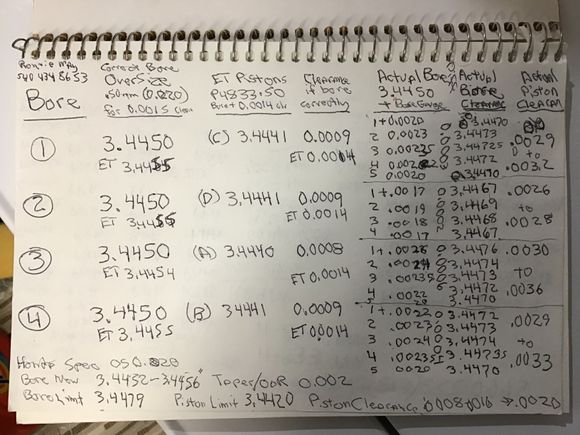 540 434 8653
Correct Bore Oversize .50mm (0.020) for 0.0015 Clear
ET Pistons P4833.50 Bore + 0.0014 clr
Clearance if bore correctly
Actual Bore 3.4450 + Bore Gauge
Actual Bore Clearance
Actual Piston Clearan
Bore
1 3.4450 (C) 3.4441 0.0009
ET 3.4455 ET 0.0014
1 + 0.0020 3.4470
2 0.0023 3.4473 .0029
3 0.00225 3.44725 to
4 3.4472 .0032
5 0.0020 3.4470
2 3.4450 (D) 3.4441 0.0009
ET 3.4455 ET 0.0014
1 +.0017 3.4467 .0026
2 .0019 3.4469 to
3 .0018 3.4468 .0028
4 .0017 3.4467
3 3.4450 (A) 3.4440 0.0008
ET 3.4454 ET 0.0014
1 +.0026 3.4476 .0030
2 .0024 3.4474
3 .00235 3.4473 to
4 .0022 3.4472 .0036
5 3.4470
4 3.4450 (B) 3.4441 0.0009
ET 3.4455 ET 0.0014
1 +.0022 3.4472 .0029
2 .0023 3.4473
3 .0024 3.4474 to
4 .00235 3.44735 .0033
5 .0020 3.4470
Honda Spec OS 0.020
Bore New 3.4452-3.4456" Taper/OOR 0.002
Bore Limit 3.4479 Piston Limit 3.4420 Piston Clearance .0008 → .0020